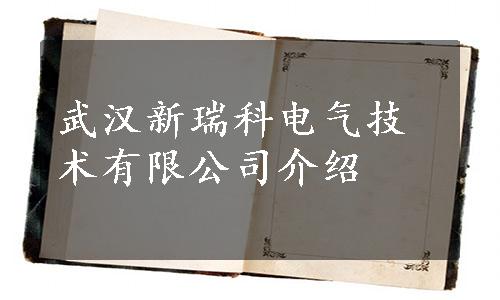 武汉新瑞科电气技
术有限公司介绍